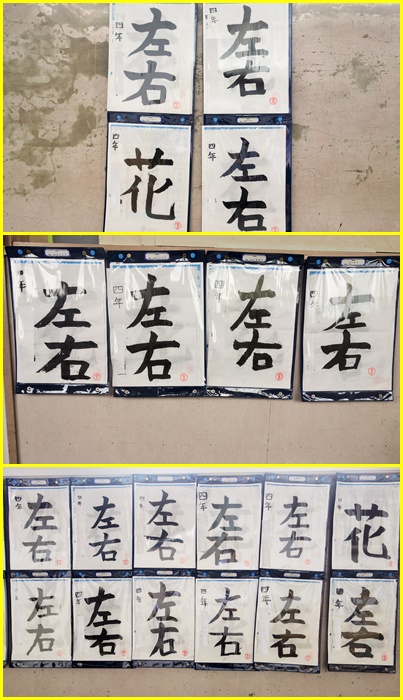 四年
左右
四年
左右
四年
花
四年
左右
年
左右
四年
左右
四年
左右
四
左右
四年
左右
四年
左右
左右
四年
左右
四年
左右
花
左右
四年
左右
四年
左右
四年
左右
四年
左右
四年
左右